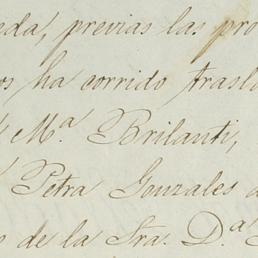 eda, previas las pro
os ha corrido trasl
Mª Brilanti,
Petra Gonzales d
o de la Sra. D.ª